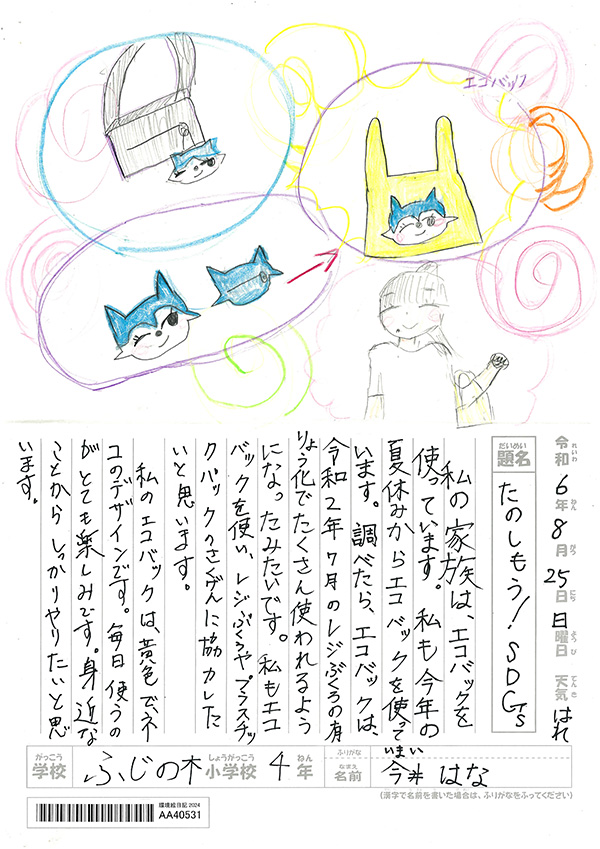 エコバック
令和6年8月25日日曜日 天気 はれ
れいわ ねん がつ にち ようび てんき
だいめい
題名
たのしもう！SDGs
私の家族は、エコバックを
使っています。私も今年の
夏休みからエコバックを使って
います。調べたら、エコバックは、
令和2年7月のレジぶくろの有
りょう化でたくさん使われるよう
になったみたいです。私もエコ
バックを使い、レジぶくろやプラスチッ
クパックのさくげんに協力した
いと思います。
私のエコバックは、黄色で、ネ
コのデザインです。毎日使うの
がとても楽しみです。身近な
ことからしっかりやりたいと思
います。
がっこう しょうがっこう ねん ふりがな いまい
学校 ふじの木 小学校 4年 なまえ 名前 今井 はな
(漢字で名前を書いた場合は、ふりがなをふってください)
環境絵日記 2024
AA40531